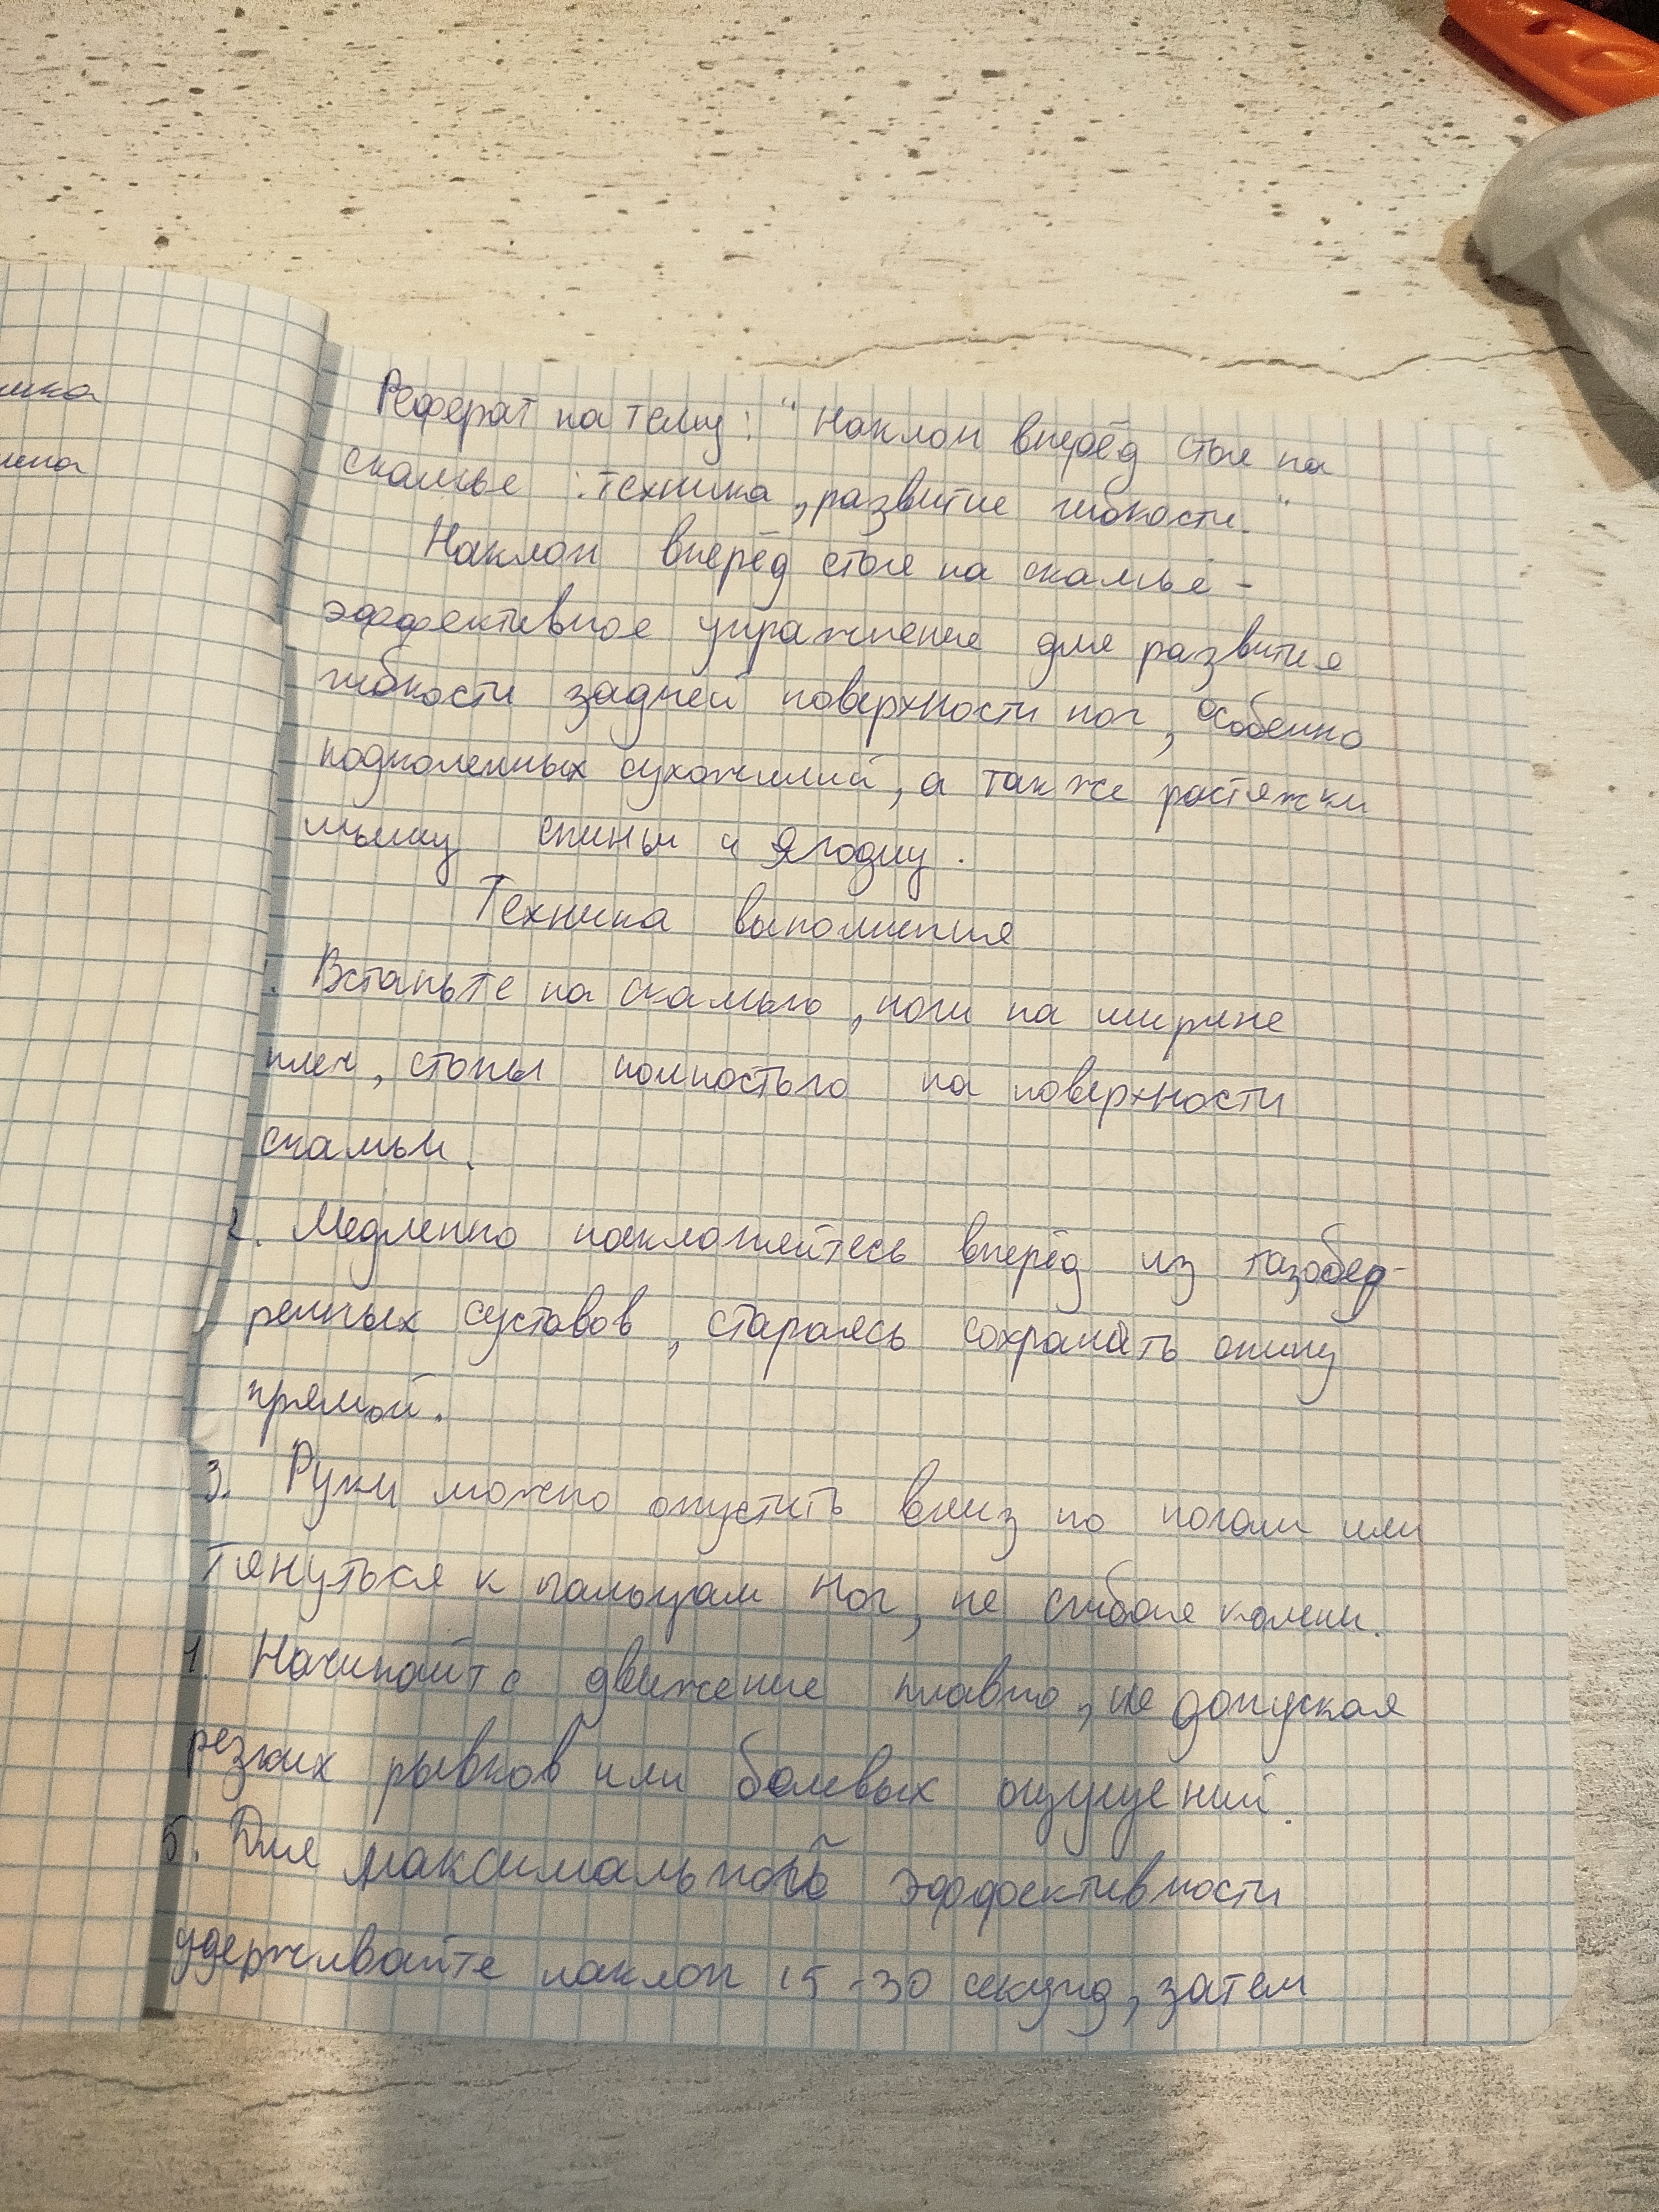 шка
шка
Реферат на тему: "Наклон вперёд стоя на
скамье : техника, развитие гибкости."
Наклон вперёд стоя на скамье -
эффективное упражнение для развития
гибкости задней поверхности ног, особенно
подколенных сухожилий, а также растяжки
мышц спины и ягодиц.
Техника выполнения
. Встаньте на скамью, ноги на ширине
плеч, стопы полностью на поверхности
скамьи.
2. Медленно наклоняйтесь вперёд из тазобед-
ренных суставов, стараясь сохранять спину
прямой.
3. Руки можно опустить вниз по ногам или
тянуться к пальцам ног, не сгибая колени.
4. Начинайте движение плавно, не допуская
резких рывков или болевых ощущений.
5. Для максимальной эффективности
удерживайте наклон 15-30 секунд, затем